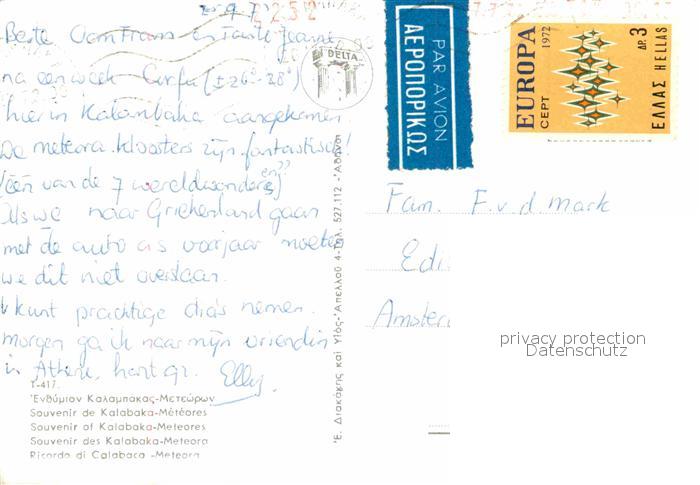 Beste Oom Frans en Tante Jeanne
na een week Corfu (± 26° - 28°)
hier in Kalambaka aangekomen
De meteora kloosters zijn fantastisch!
(één van de 7 wereldwonderen??)
Als we naar Griekenland gaan
met de auto a.s voorjaar moeten
we dit niet overslaan.
U kunt prachtige dia's nemen.
morgen ga ik naar mijn vriendin
in Athene, hart. gr. Elly
T-417.
Ἐνθύμιον Καλαμπάκας-Μετεώρων
Souvenir de Kalabaka-Météores
Souvenir of Kalabaka-Meteores
Souvenir des Kalabaka-Meteora
Ricordo di Calabaca -Meteora
Ἐ. Διακάκης καὶ Υἱός-Ἀπελλοῦ 4-Τηλ. 527.112 -Ἀθῆναι
DELTA
PAR AVION
ΑΕΡΟΠΟΡΙΚΩΣ
EUROPA
CEPT
1972
ΔΡ. 3
ΕΛΛΑΣ HELLAS
Fam. F. v. d mark
Edi
Amster
privacy protection
Datenschutz